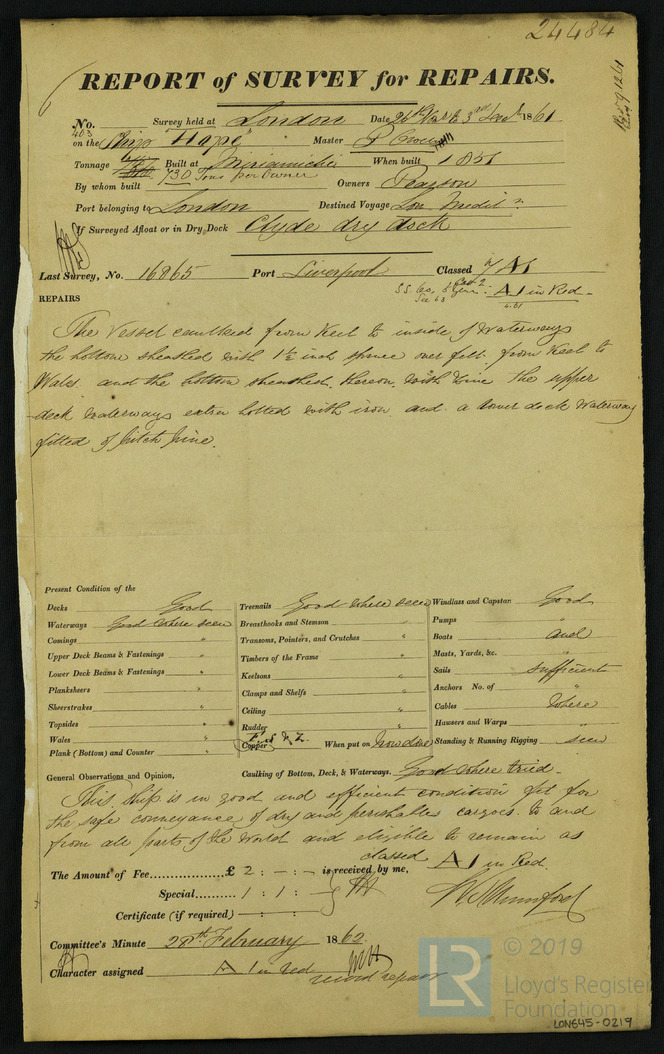 24484
REPORT of SURVEY for REPAIRS.
No. 403 Survey held at London Date 1861
on the Ship "Hope" Master P
Tonnage Built at Miramichi When built 1851
By whom built 730 Tons per Owner Owners Pearson
Port belonging to London Destined Voyage Medit n
If Surveyed Afloat or in Dry Dock Clyde dry dock
Last Survey, No. 16865 Port Liverpool Classed A1
A1 in Red
4.61
REPAIRS
The Vessel caulked from Keel to inside of Waterways
the bottom sheathed with 1½ inch spruce over felt from Keel to
Wales and the bottom sheathed thereon with Zinc the upper
deck waterways extra bolted with iron and a lower deck Waterway
fitted of pitch pine.
Present Condition of the
Decks Good
Waterways Good where seen
Comings "
Upper Deck Beams & Fastenings "
Lower Deck Beams & Fastenings "
Planksheers "
Sheerstrakes "
Topsides "
Wales "
Plank (Bottom) and Counter "
Treenails Good where seen
Breasthooks and Stemson "
Transoms, Pointers, and Crutches "
Timbers of the Frame "
Keelsons "
Clamps and Shelfs "
Ceiling "
Rudder "
Copper & Z. When put on Now done
Caulking of Bottom, Deck, & Waterways. Good where tried
Windlass and Capstan Good
Pumps "
Boats and
Masts, Yards, &c. "
Sails sufficient
Anchors No. of "
Cables where
Hawsers and Warps "
Standing & Running Rigging seen
General Observations and Opinion,
This Ship is in good and efficient condition fit for
the safe conveyance of dry and perishable cargoes to and
from all parts of the World and eligible to remain as
classed A1 in Red.
The Amount of Fee £ 2 : - : - is received by me,
Special 1 : 1 : -
Certificate (if required) - : - : -
Committee's Minute 28th February 1862
Character assigned A1 in red
record repairs
LR © 2019
Lloyd's Register
Foundation
LON645-0219